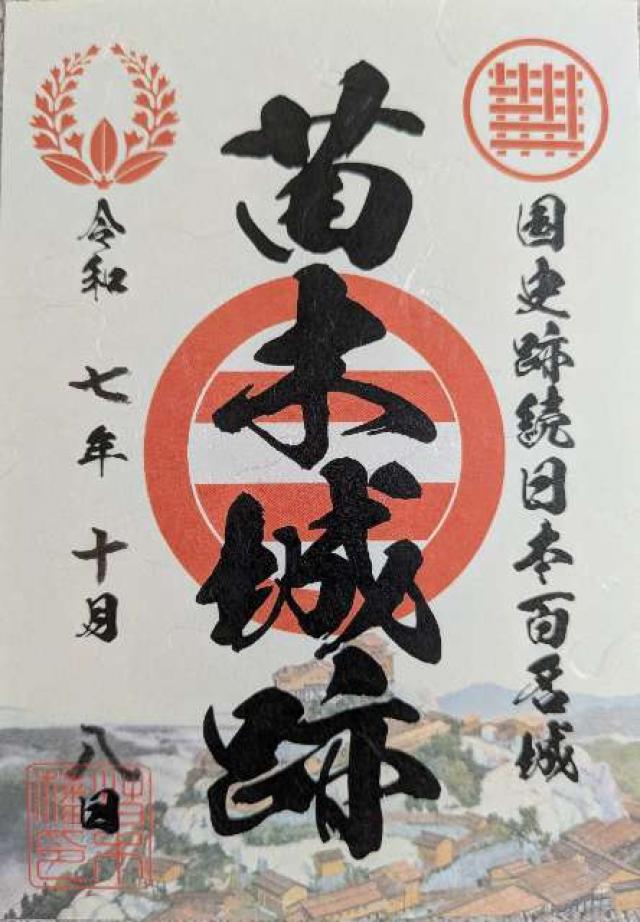 国史跡続日本百名城
苗木城跡
令和 七年 十月 八日